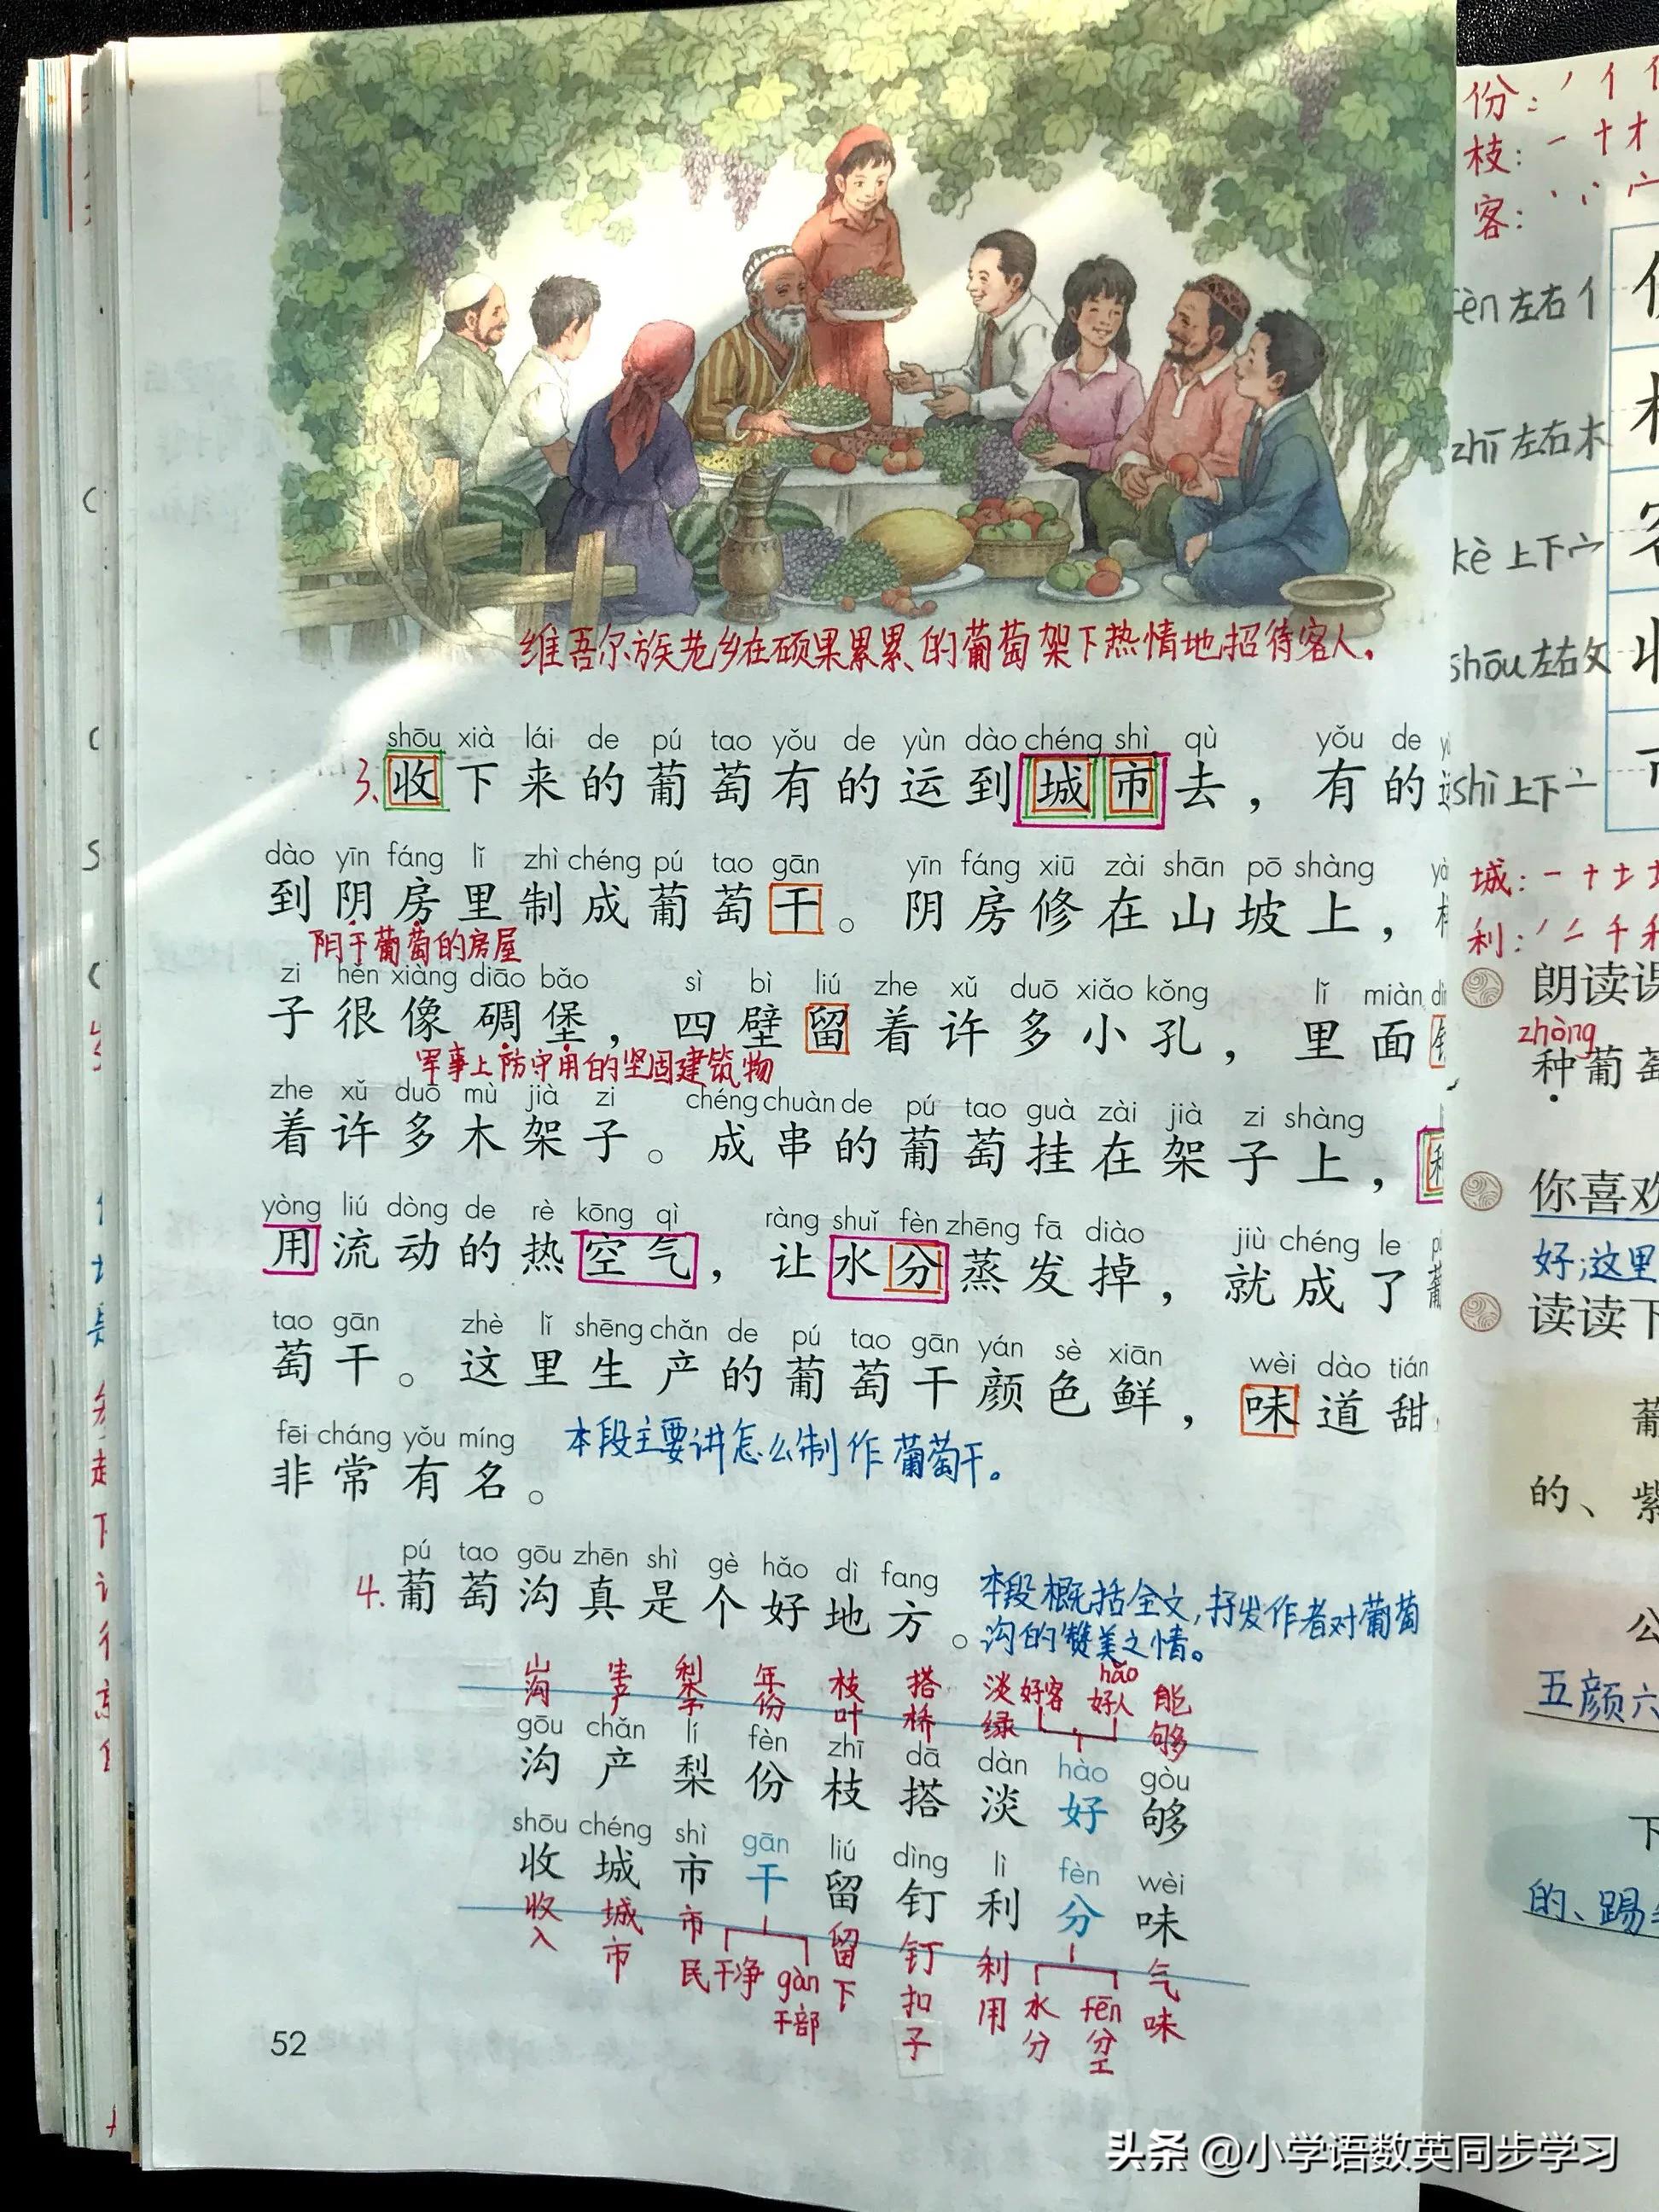 维吾尔族老乡在硕果累累的葡萄架下热情地招待客人。
shōu xià lái de pú tao yǒu de yùn dào chéng shì qù yǒu de
3.收下来的葡萄有的运到城市去，有的
dào yīn fáng lǐ zhì chéng pú tao gān yīn fáng xiū zài shān pō shàng
到阴房里制成葡萄干。阴房修在山坡上，
阴干葡萄的房屋
zi hěn xiàng diāo bǎo sì bì liú zhe xǔ duō xiǎo kǒng lǐ miàn
子很像碉堡，四壁留着许多小孔，里面
军事上防守用的坚固建筑物
zhe xǔ duō mù jià zi chéng chuàn de pú tao guà zài jià zi shàng
着许多木架子。成串的葡萄挂在架子上，
yòng liú dòng de rè kōng qì ràng shuǐ fèn zhēng fā diào jiù chéng le
用流动的热空气，让水分蒸发掉，就成了
tao gān zhè lǐ shēng chǎn de pú tao gān yán sè xiān wèi dào tián
萄干。这里生产的葡萄干颜色鲜，味道甜
fēi cháng yǒu míng
非常有名。
本段主要讲怎么制作葡萄干。
pú tao gōu zhēn shì gè hǎo dì fang
4.葡萄沟真是个好地方。
本段概括全文，抒发作者对葡萄
沟的赞美之情。
山沟 生产 梨子 年份 枝叶 搭桥 淡绿 好客 hǎo 好人 能够
gōu chǎn lí fèn zhī dā dàn hào gòu
沟 产 梨 份 枝 搭 淡 好 够
shōu chéng shì gān liú dìng lì fèn wèi
收 城 市 干 留 钉 利 分 味
收入 城市 市民 干净 gàn 干部 留下 钉扣子 利用 水分 fēn 分工 气味
52
份：
枝：
客：
fèn 左右 亻
zhī 左右 木
kè 上下 宀
shōu 左右 攵
shì 上下 亠
城：
利：
朗读课
zhòng
种葡萄
你喜欢
好；这里
读读下
葡
的、紫
公
五颜六
下
的、踢
头条 @小学语数英同步学习